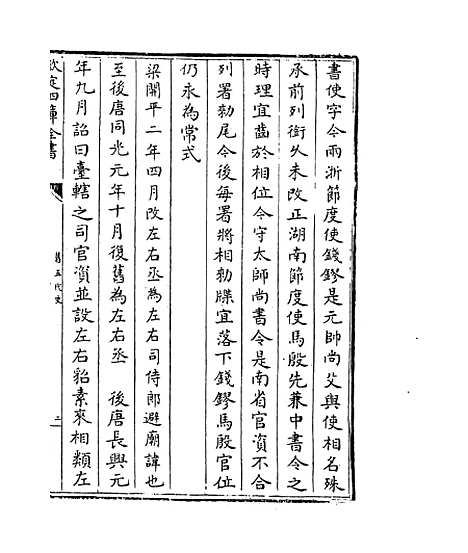 書使字今兩浙節度使錢鏐是元帥尚父與使相名殊
承前列銜久未改正湖南節度使馬殷先兼中書令之
時理宜齒於相位今守太師尚書令是南省官資不合
列署勅尾今後每署將相勅牒宜落下錢鏐馬殷官位
仍永為常式
梁開平二年四月改左右丞為左右司侍郎避廟諱也
至後唐同光元年十月復舊為左右丞　後唐長興元
年九月詔曰臺轄之司官資並設左右貂素來相類左
欽定四庫全書
舊五代史
二